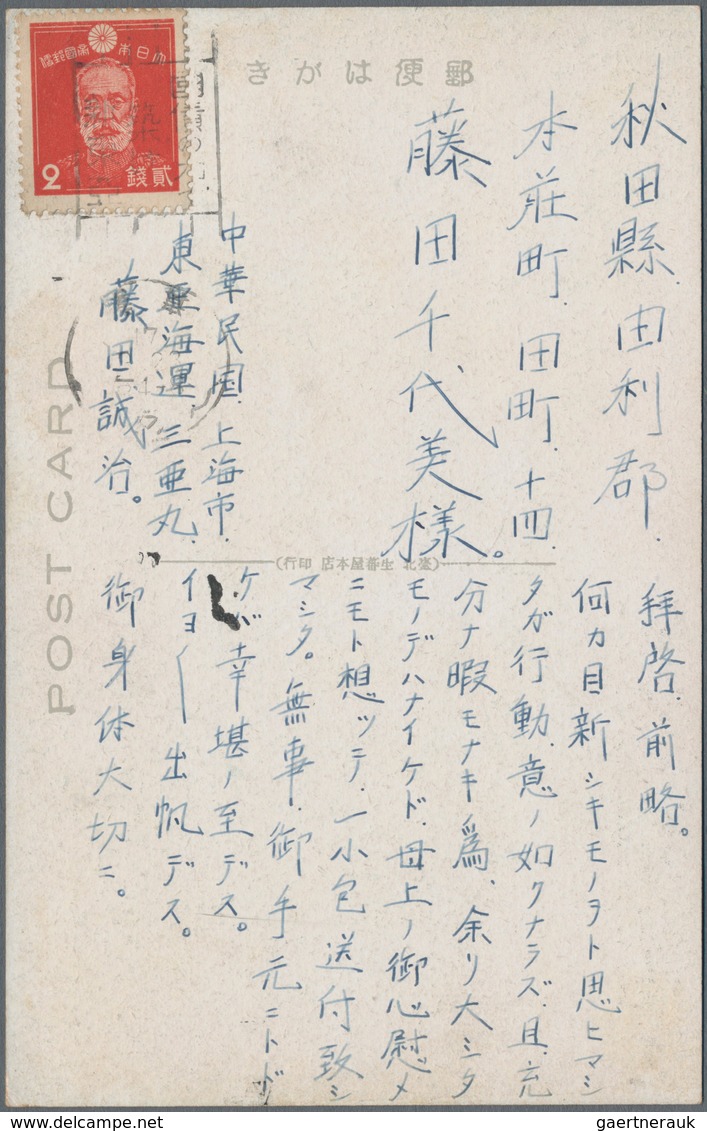 大日本帝國郵便
2
貳錢
郵便はがき
秋田縣由利郡.
本荘町.田町.十四.
藤田千代美様。
中華民国.上海市.
東亜海運 三亜丸.
藤田誠治。
POST CARD
(臺北 生蕃屋本店 印行)
拝啓.前略。
何カ目新シキモノヲト思ヒマシ
タガ行動.意ノ如クナラズ.且.充
分ナ暇モナキ為、余リ大シタ
モノデハナイケド.母上ノ御心慰メ
ニモト想ッテ.一小包送付致シ
マシタ。無事.御手元ニトド
ケバ幸堪ノ至デス。
イヨ〱出帆デス。
御身体大切ニ。
gaertnerauk